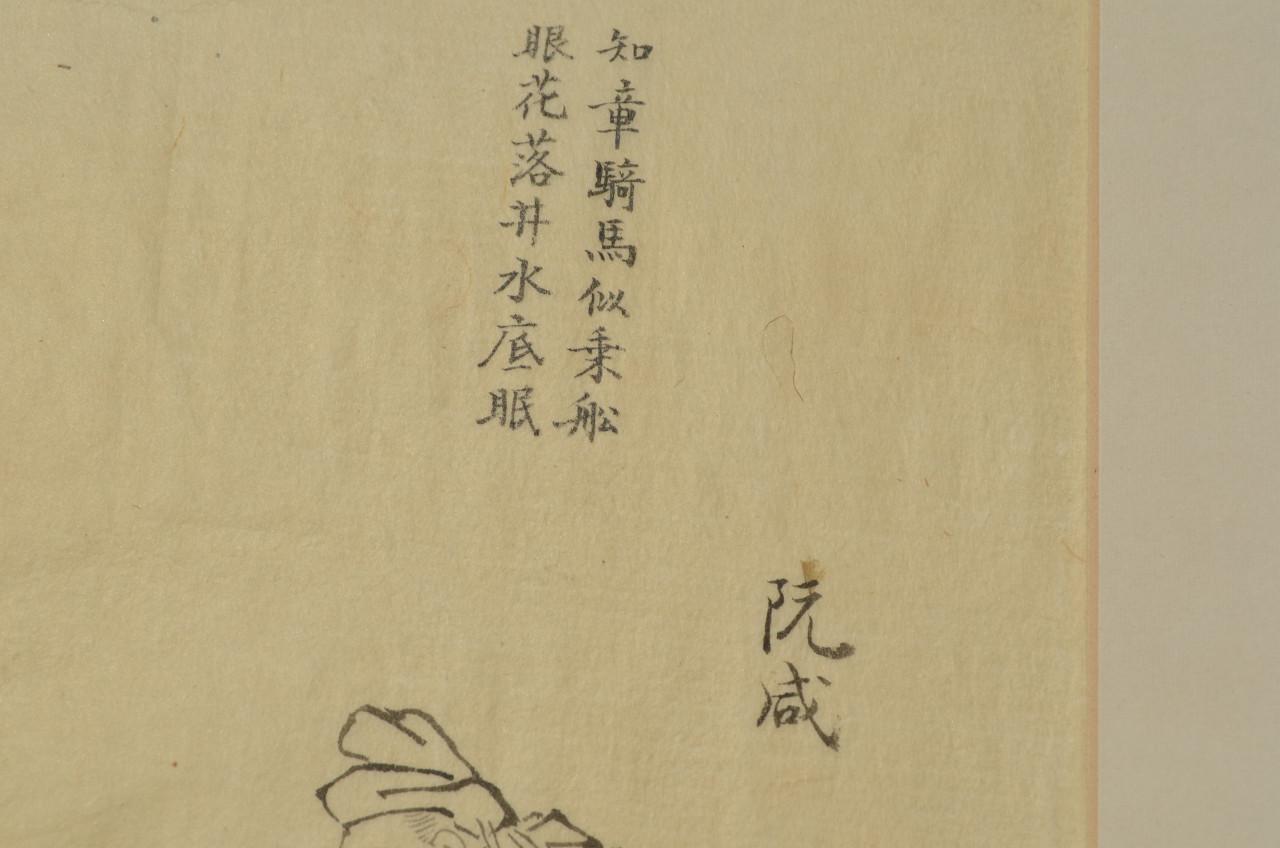 阮咸
知章騎馬似乗舩
眼花落井水底眠